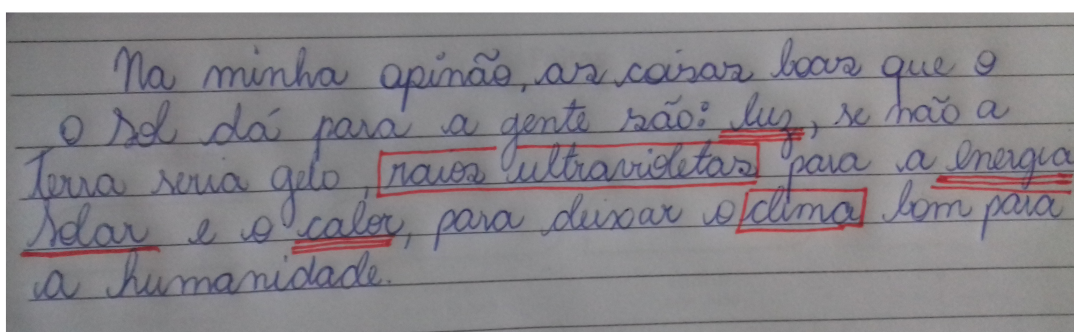 Na minha opinão, as coisas boas que o
o Sol dá para a gente são: luz, se não a
Terra seria gelo, raios ultravioletas para a energia
Solar e o calor, para deixar o clima bom para
a humanidade.